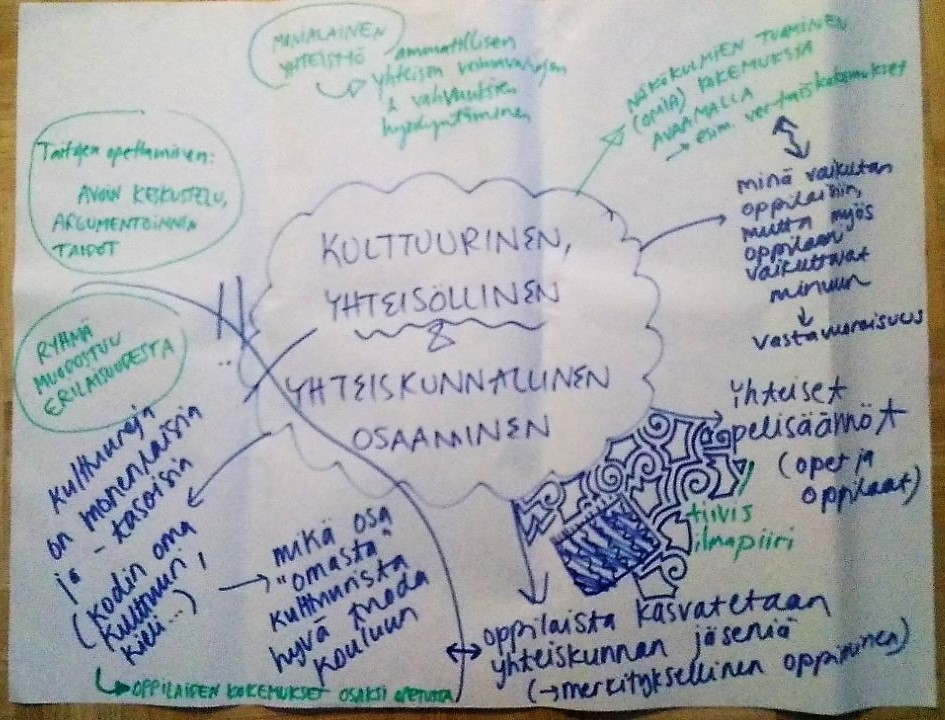 MONIALAINEN
YHTEISTYÖ
ammatillisen
yhteisen voimavarojen
& vahvuuksien
hyödyntäminen
NÄKÖKULMIEN TUOMINEN
(OMIA) KOKEMUKSIA
AVAAMALLA
→ esim. vertaiskokemukset
Taitojen opettaminen:
AVOIN KESKUSTELU,
ARGUMENTOINNIN
TAIDOT
minä vaikutan
oppilaisiin,
mutta myös
oppilaan
vaikuttavat
minuun
↓
vastavuoroisuus
KULTTUURINEN,
YHTEISÖLLINEN
&
YHTEISKUNNALLINEN
OSAAMINEN
RYHMÄ
MUODOSTUU
ERILAISUUDESTA
kulttuureja
on monenlaisia
ja -tasoisia
(kodin oma
kulttuuri,
kieli...)
→ mikä osa
"omasta"
kulttuurista
hyvä tuoda
kouluun
yhteiset
pelisäännöt
(opet ja
oppilaat)
tiivis
ilmapiiri
↔ oppilaista kasvatetaan
yhteiskunnan jäseniä
(→ merkityksellinen oppiminen)
OPPILAIDEN KOKEMUKSET OSAKSI OPETUSTA